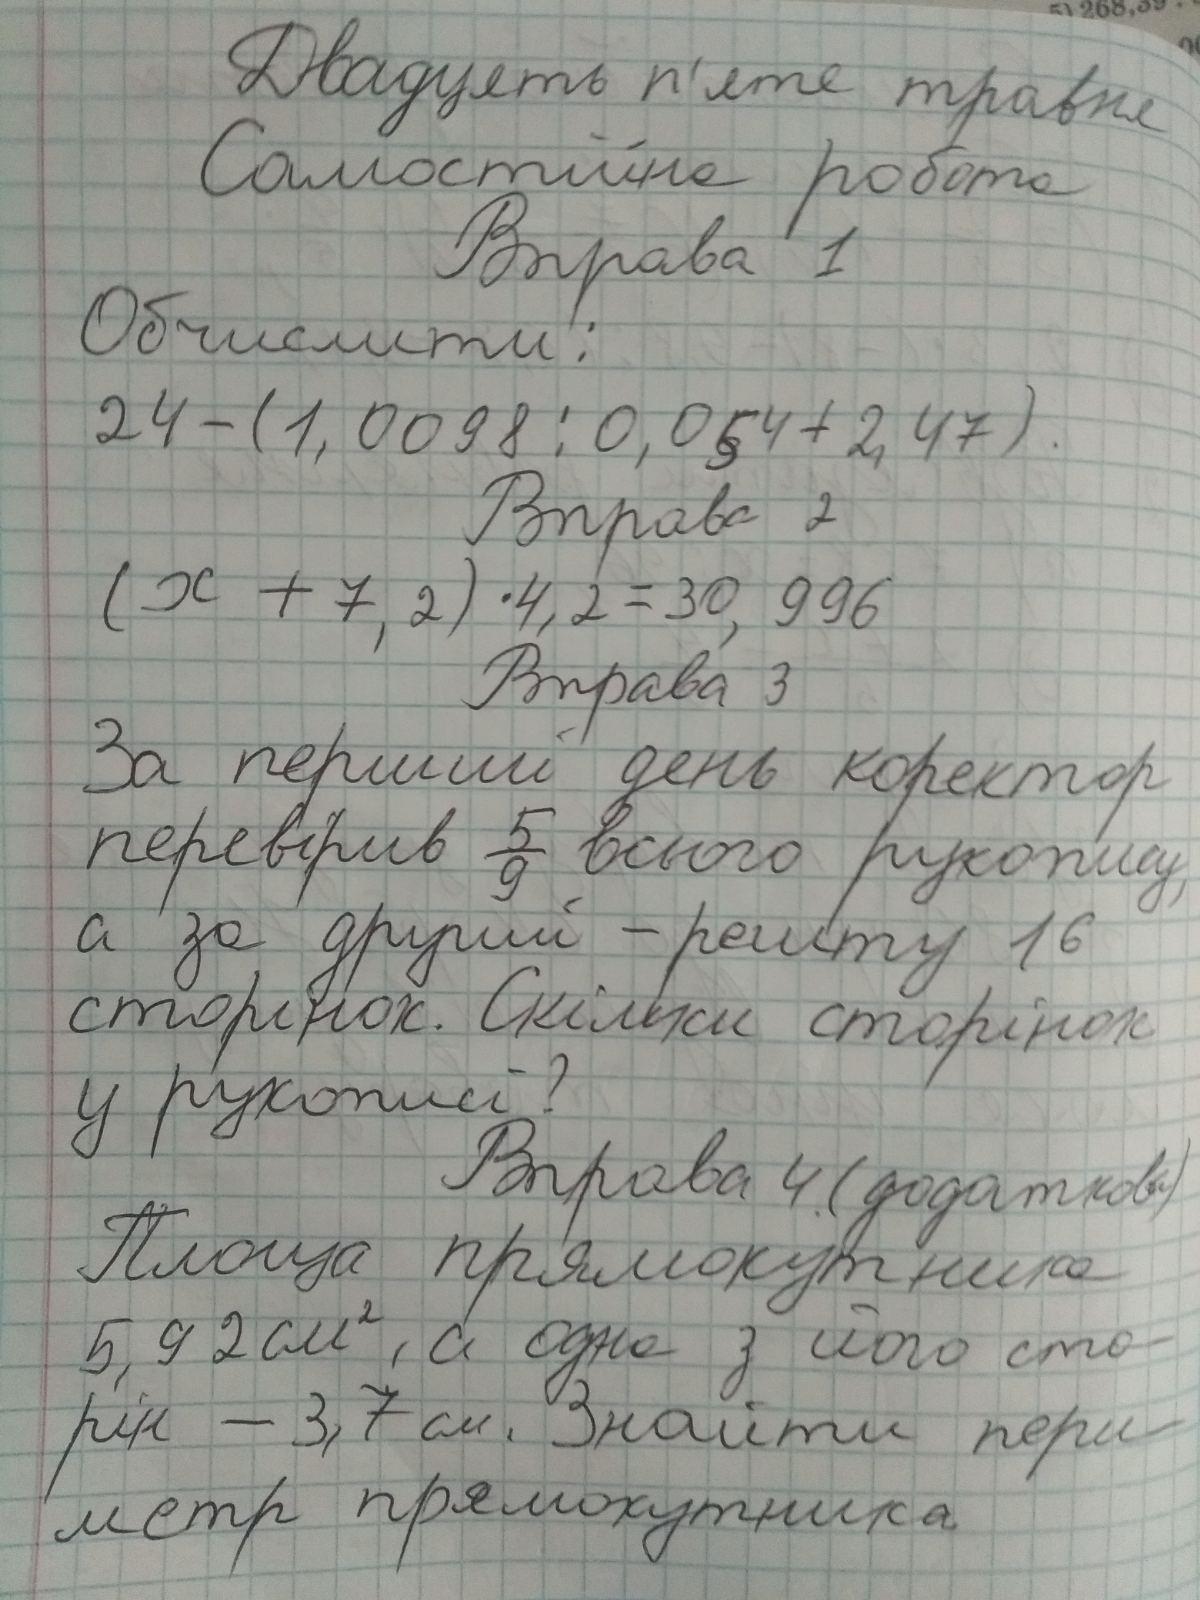 5) 268,39 :
Двадцять п'яте травня
Самостійна робота
Вправа 1
Обчислити:
24-(1,0098:0,054+2,47).
Вправа 2
(x + 7,2)·4,2=30,996
Вправа 3
За перший день коректор
перевірив 5/9 всього рукопису,
а за другий – решту 16
сторінок. Скільки сторінок
у рукописі?
Вправа 4.(додаткова)
Площа прямокутника
5,92см², а одна з його сто-
рін – 3,7 см. Знайти пери-
метр прямокутника